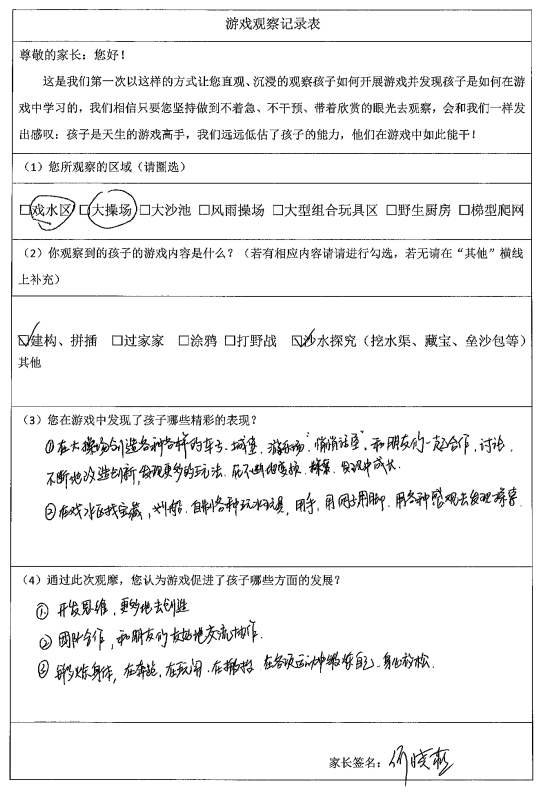 游戏观察记录表
尊敬的家长：您好！
这是我们第一次以这样的方式让您直观、沉浸的观察孩子如何开展游戏并发现孩子是如何在游
戏中学习的，我们相信只要您坚持做到不着急、不干预、带着欣赏的眼光去观察，会和我们一样发
出感叹：孩子是天生的游戏高手，我们远远低估了孩子的能力，他们在游戏中如此能干！
（1）您所观察的区域（请圈选）
□戏水区 □大操场 □大沙池 □风雨操场 □大型组合玩具区 □野生厨房 □梯型爬网
（2）你观察到的孩子的游戏内容是什么？（若有相应内容请请进行勾选，若无请在“其他”横线
上补充）
☑建构、拼插 □过家家 □涂鸦 □打野战 ☑沙水探究（挖水渠、藏宝、垒沙包等）
其他
（3）您在游戏中发现了孩子哪些精彩的表现？
①在大操场创造各种各样的车子、城堡、游乐场“悄悄话屋”，和朋友们一起合作，讨论，
不断地改造创新，发现更多的玩法。在不断地探索、发现中成长。
②在戏水区找宝藏，划船，自制各种玩水玩具，用手，用脚，用各种感观去发现探索
（4）通过此次观摩，您认为游戏促进了孩子哪些方面的发展？
① 开发思维，更多地去创造
② 团队合作，和朋友们友好地交流协作.
③ 锻炼身体，在奔跑，在玩闹，在各项运动中锻炼自己，身心放松.
家长签名：何晓